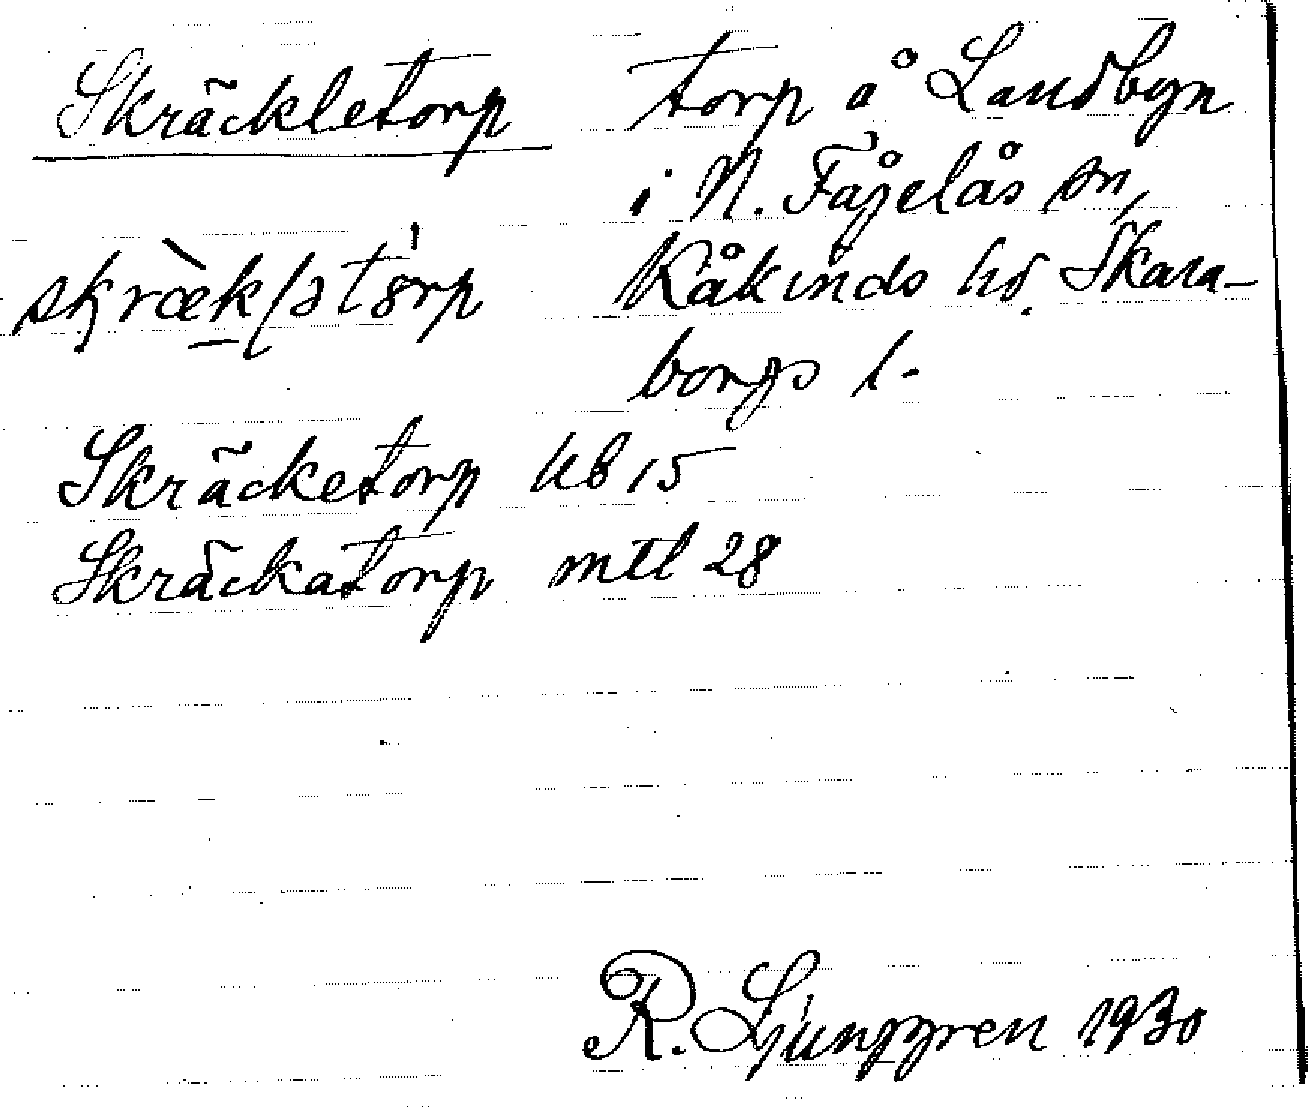 Skräckletorp torp å Landbyn
i N. Fågelås sn,
Kåkinds hd. Skara-
borgs l.
Skräcketorp hb 15
Skräckatorp mtl 28
R. Ljunggren 1930